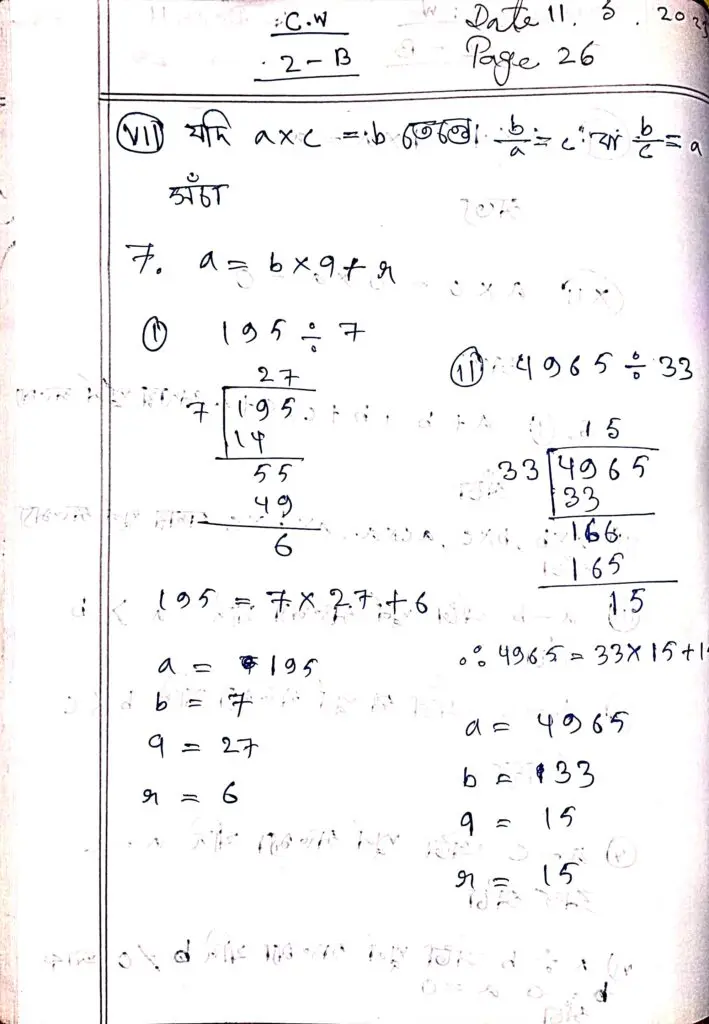 C.W
2-B
Date 11. 3. 202
Page 26
(VII) যদি a×c = b তেন্তে b/a = c বা b/c = a
সঁচা
7. a = b × q + r
(I) 195 ÷ 7
27
7 195
14
55
49
6
195 = 7 × 27 + 6
a = 195
b = 7
q = 27
r = 6
(II) 4965 ÷ 33
15
33 4965
33
166
165
15
∴ 4965 = 33 × 15 + 1
a = 4965
b = 33
q = 15
r = 15